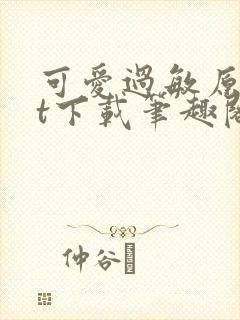 可愛過敏原
t下載筆趣閣
仲谷